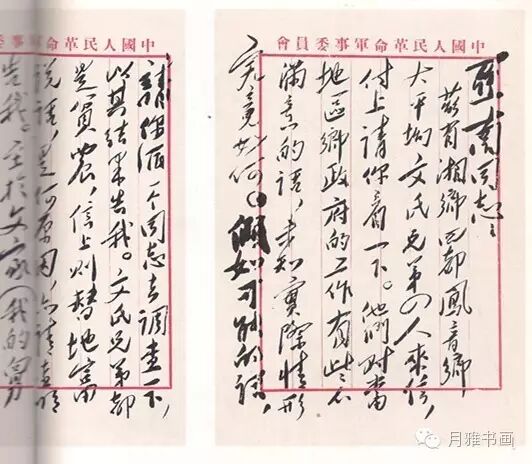 中國人民革命軍事委員會
亞南同志：
茲有湘鄉四都鳳音鄉，
大平坳文氏兄弟四人來信，
付上請你看一下。他們對當
地區鄉政府的工作有些不
滿意的話，未知實際情形
究竟如何。假如可能的話，
中國人民革命軍事委
請你派一个同志去調查一下，
以其結果告我。文氏兄弟都
是貧農，信上則替地富
說話，是何原因，亦請查明
告我。至於文家（我的舅
月雅书画